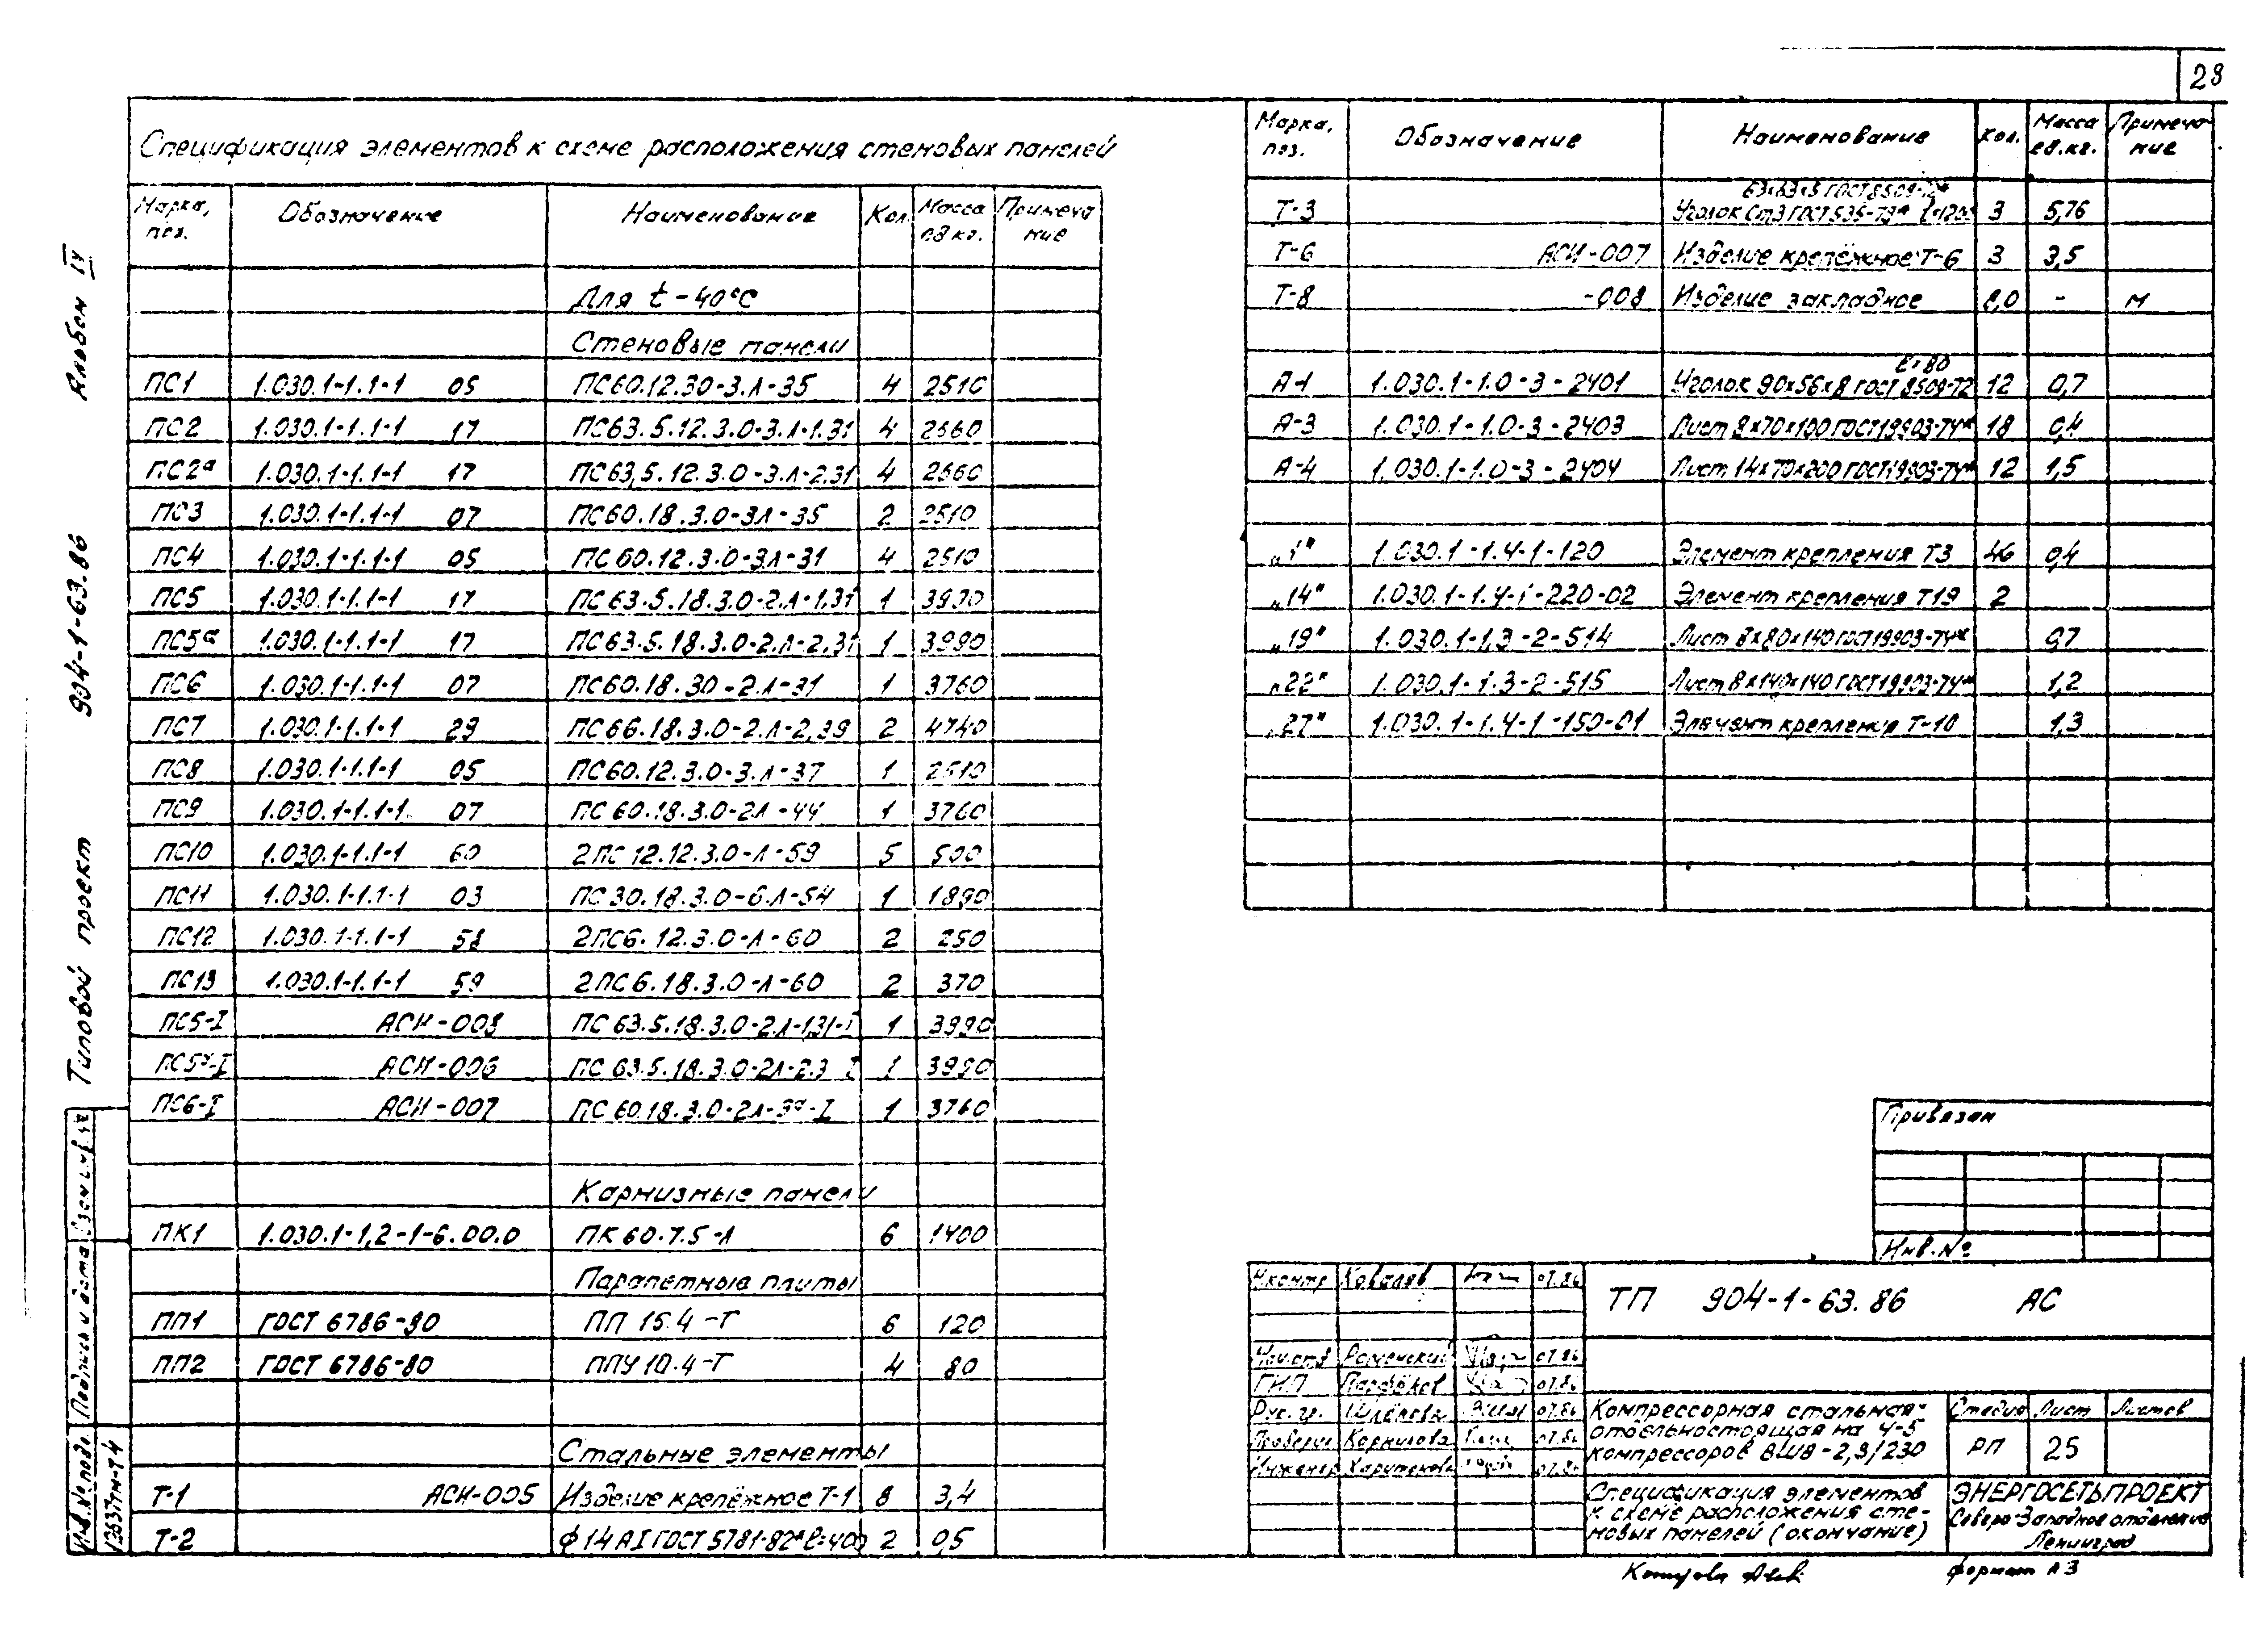 28
Спецификация элементов к схеме расположения стеновых панелей
Марка, поз. Обозначение Наименование Кол. Масса ед.кг. Примечание
Для t -40°С
Стеновые панели
ПС1 1.030.1-1.1-1 05 ПС60.12.30-3.Л-35 4 2510
ПС2 1.030.1-1.1-1 17 ПС63.5.12.3.0-3.Л-1.31 4 2660
ПС2а 1.030.1-1.1-1 17 ПС63,5.12.3.0-3.Л-2.31 4 2660
ПС3 1.030.1-1.1-1 07 ПС60.18.3.0-3Л-35 2 2510
ПС4 1.030.1-1.1-1 05 ПС60.12.3.0-3Л-31 4 2510
ПС5 1.030.1-1.1-1 17 ПС63.5.18.3.0-2.Л-1.31 1 3990
ПС5а 1.030.1-1.1-1 17 ПС63.5.18.3.0-2.Л-2,31 1 3990
ПС6 1.030.1-1.1-1 07 ПС60.18.30-2.Л-31 1 3760
ПС7 1.030.1-1.1-1 29 ПС66.18.3.0-2.Л-2,39 2 4740
ПС8 1.030.1-1.1-1 05 ПС60.12.3.0-3.Л-37 1 2510
ПС9 1.030.1-1.1-1. 07 ПС60.18.3.0-2Л-44 1 3760
ПС10 1.030.1-1.1-1 60 2ПС12.12.3.0-Л-59 5 500
ПС11 1.030.1-1.1-1 03 ПС30.18.3.0-6.Л-54 1 1890
ПС12 1.030.1-1.1-1 58 2ПС6.12.3.0-Л-60 2 250
ПС13 1.030.1-1.1-1 59 2ПС6.18.3.0-Л-60 2 370
ПС5-I АСИ-008 ПС63.5.18.3.0-2.Л-1,31-I 1 3990
ПС5а-I АСИ-006 ПС63.5.18.3.0-2Л-2.3 I 1 3990
ПС6-I АСИ-007 1 3760
Карнизные панели
ПК1 1.030.1-1,2-1-6.00.0 ПК60.7.5-Л 6 1400
Парапетные плиты
ПП1 ГОСТ 6786-80 ПП 15.4-Т 6 120
ПП2 ГОСТ 6786-80 ППУ10.4-Т 4 80
Стальные элементы
Т-1 АСИ-005 Изделие крепёжное Т-1 8 3,4
Т-2 ф14АI ГОСТ 5781-82* ℓ=400 2 0,5
Марка, поз. Обозначение Наименование Кол. Масса ед.кг. Примечание
63×63×5 ГОСТ 8509-72*
Т-3 Уголок Ст3 ГОСТ 535-79* 3 5,76
Т-6 АСИ-007 Изделие крепёжное Т-6 3 3,5
Т-8 -008 Изделие закладное 8,0 - м
ℓ=80
А-1 1.030.1-1.0-3-2401 Уголок 90×56×8 ГОСТ 8509-72 12 0,7
А-3 1.030.1-1.0-3-2403 Лист 8×70×100 ГОСТ19903-74* 18 0,4
А-4 1.030.1-1.0-3-2404 Лист 14×70×200 ГОСТ19903-74* 12 1,5
„1" 1.030.1-1.4-1-120 Элемент крепления Т3 46 0,4
„14" 1.030.1-1.4-1-220-02 Элемент крепления Т19 2
„19" 1.030.1-1,3-2-514 Лист 8×80×140 ГОСТ19903-74* 0,7
„22" 1.030.1-1.3-2-515 Лист 8×140×140 ГОСТ19903-74* 1,2
„27" 1.030.1-1.4-1-150-01 Элемент крепления Т-10 1,3
Привязан
Инв.№
Н.контр Ковалев 07.86
ТП 904-1-63.86 АС
Нач.отд Роменский 07.86
ГИП Парфёнов 07.86
Рук.гр. 07.86
Проверил Корнилова 07.86
Инженер Харитонова 07.86
Компрессорная стальная отдельностоящая на 4-5 компрессоров ВШВ-2,3/230
Стадия Лист Листов
РП 25
Спецификация элементов к схеме расположения стеновых панелей (окончание)
ЭНЕРГОСЕТЬПРОЕКТ
Северо-Западное отделение
Ленинград
формат А3
Типовой проект 904-1-63.86 Альбом IV
Инв.№ подл. Подпись и дата Взам.инв.№